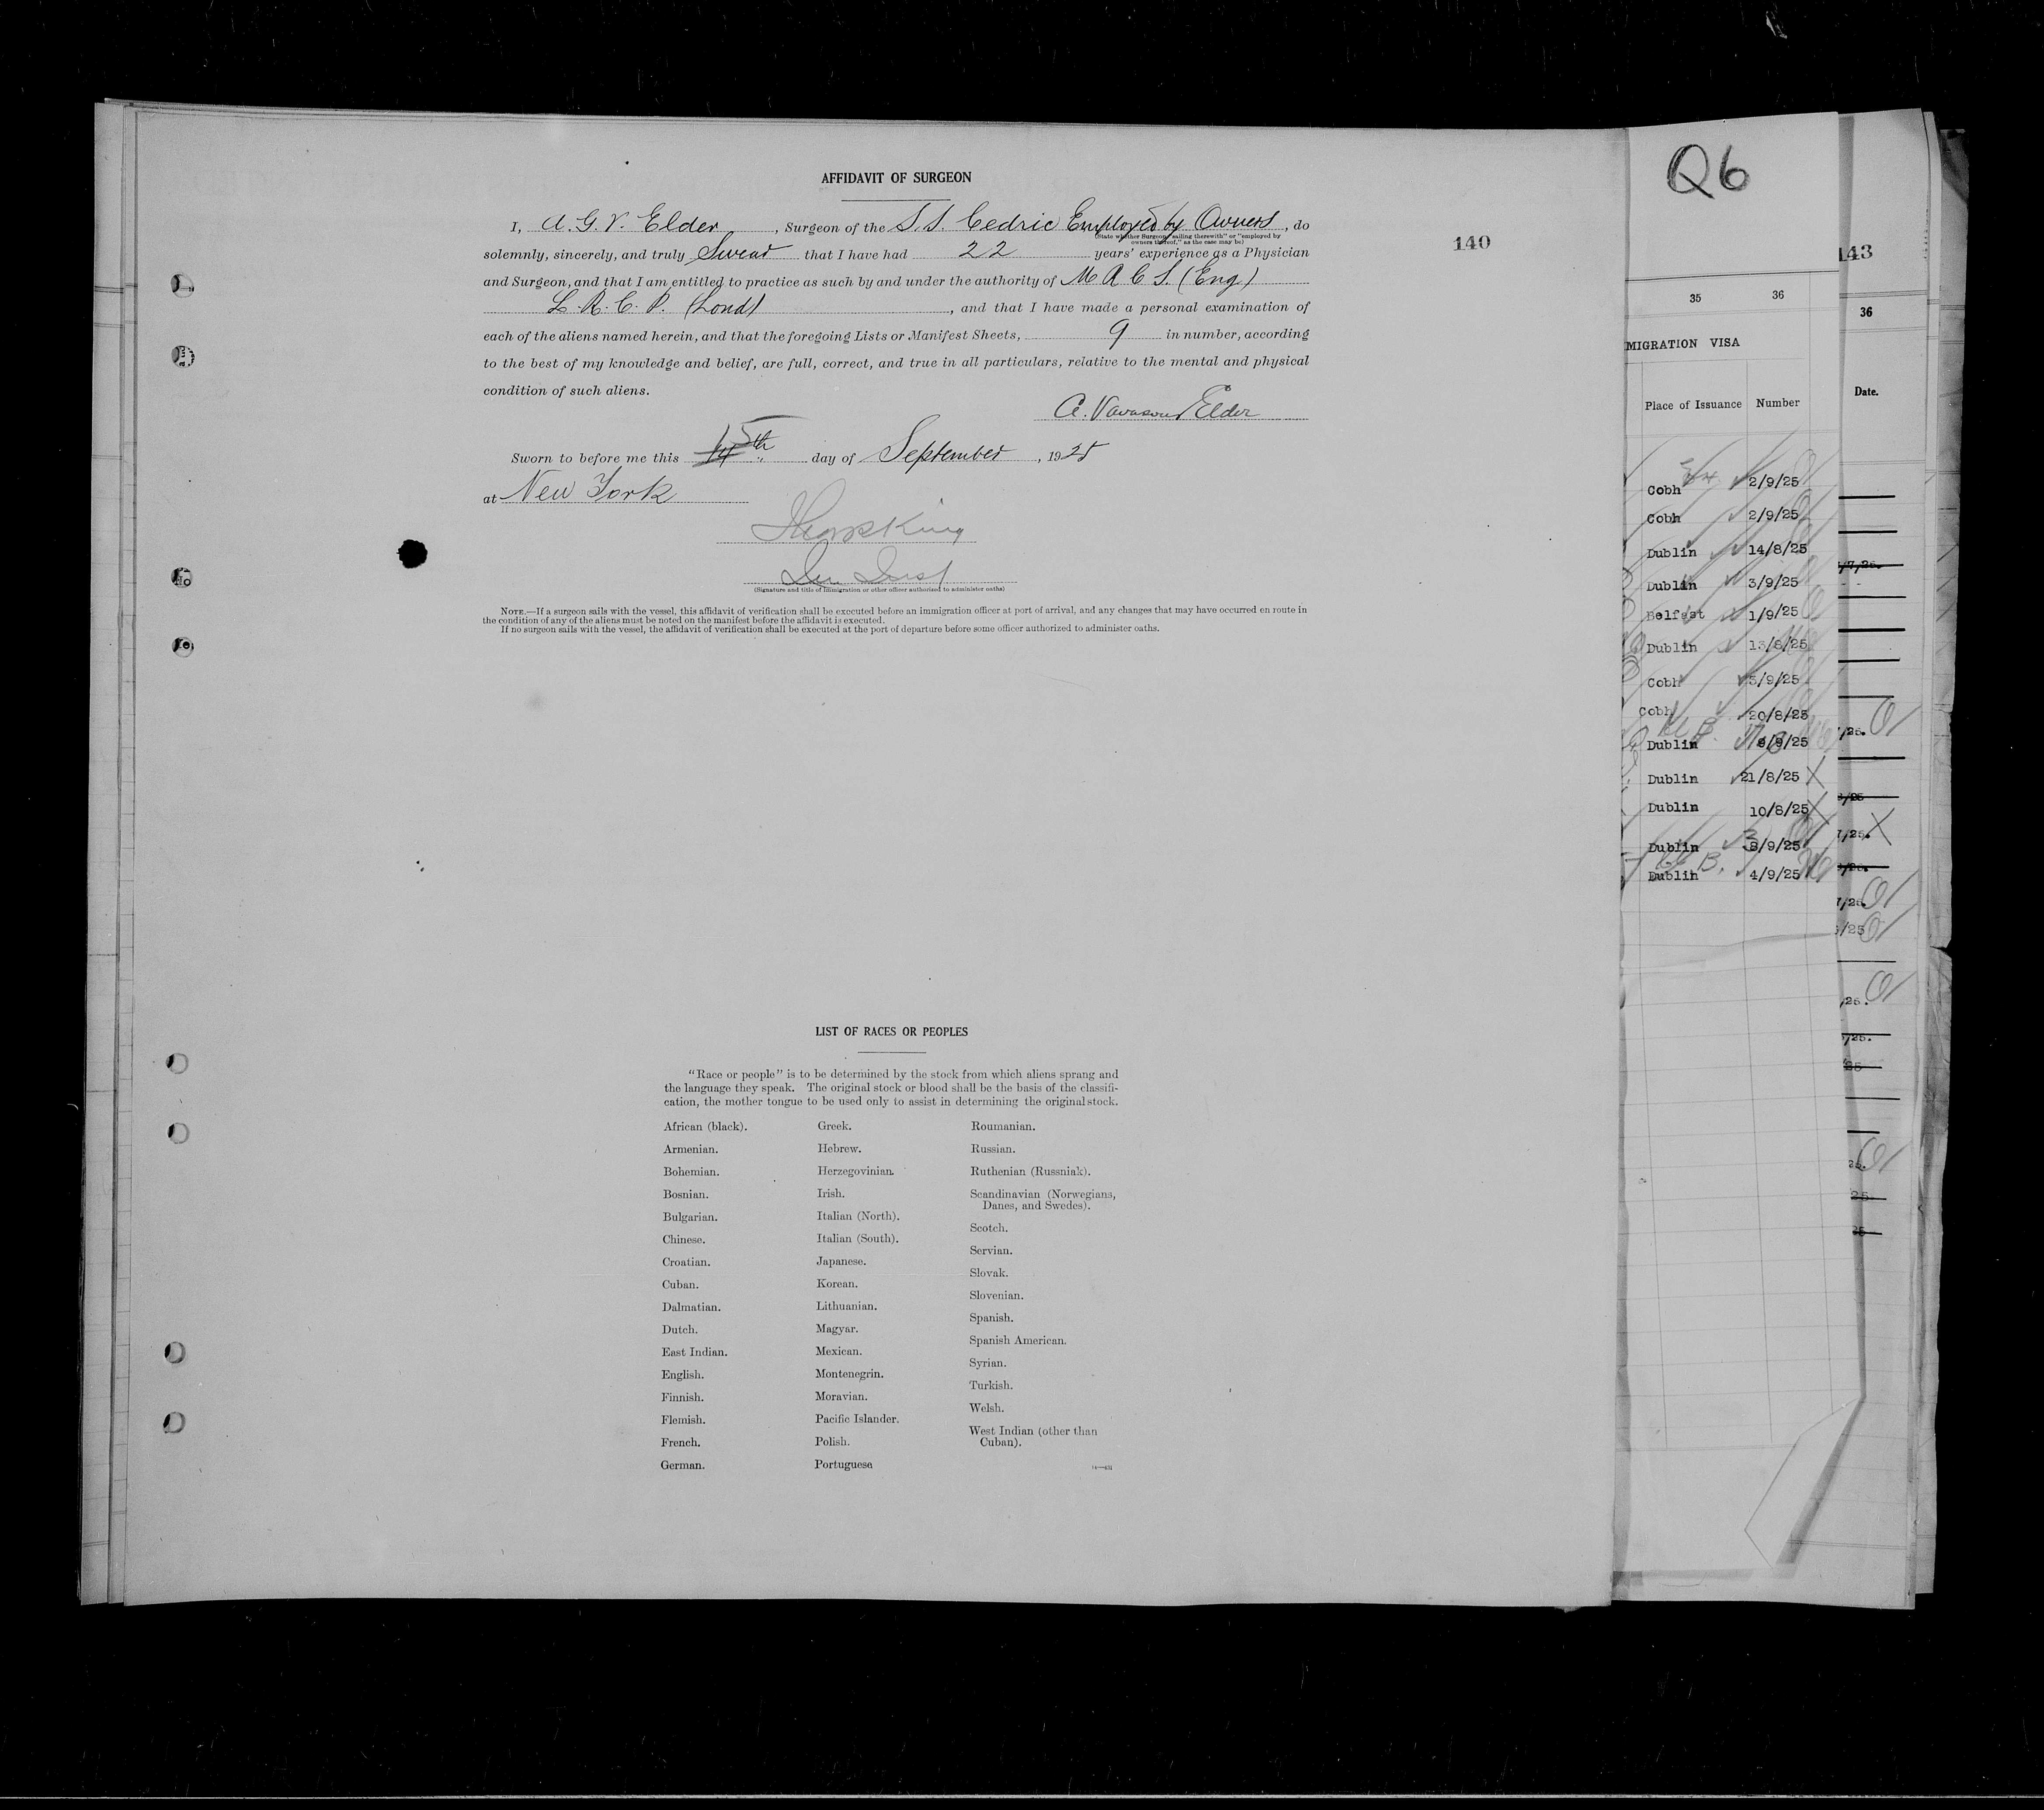 AFFIDAVIT OF SURGEON
I, A. G. V. Elder, Surgeon of the S.S. Cedric Employed by Owners, do
(State whether Surgeon "sailing therewith" or "employed by
owners thereof," as the case may be)
solemnly, sincerely, and truly Swear that I have had 22 years' experience as a Physician
and Surgeon, and that I am entitled to practice as such by and under the authority of M R C S. (Eng)
L. R. C. P. (Lond), and that I have made a personal examination of
each of the aliens named herein, and that the foregoing Lists or Manifest Sheets, 9 in number, according
to the best of my knowledge and belief, are full, correct, and true in all particulars, relative to the mental and physical
condition of such aliens.
A. Vavasour Elder
Sworn to before me this 15th day of September, 1925
at New York
(Signature and title of immigration or other officer authorized to administer oaths)
NOTE.—If a surgeon sails with the vessel, this affidavit of verification shall be executed before an immigration officer at port of arrival, and any changes that may have occurred en route in
the condition of any of the aliens must be noted on the manifest before the affidavit is executed.
If no surgeon sails with the vessel, the affidavit of verification shall be executed at the port of departure before some officer authorized to administer oaths.
140
LIST OF RACES OR PEOPLES
"Race or people" is to be determined by the stock from which aliens sprang and
the language they speak. The original stock or blood shall be the basis of the classifi-
cation, the mother tongue to be used only to assist in determining the original stock.
African (black).
Armenian.
Bohemian.
Bosnian.
Bulgarian.
Chinese.
Croatian.
Cuban.
Dalmatian.
Dutch.
East Indian.
English.
Finnish.
Flemish.
French.
German.
Greek.
Hebrew.
Herzegovinian.
Irish.
Italian (North).
Italian (South).
Japanese.
Korean.
Lithuanian.
Magyar.
Mexican.
Montenegrin.
Moravian.
Pacific Islander.
Polish.
Portuguese
Roumanian.
Russian.
Ruthenian (Russniak).
Scandinavian (Norwegians,
Danes, and Swedes).
Scotch.
Servian.
Slovak.
Slovenian.
Spanish.
Spanish American.
Syrian.
Turkish.
Welsh.
West Indian (other than
Cuban).
Q6
35 36
MIGRATION VISA
Place of Issuance Number
Cobh 2/9/25
Cobh 2/9/25
Dublin 14/8/25
Dublin 3/9/25
Belfast 1/9/25
Dublin 13/8/25
Cobh 5/9/25
Cobh 20/8/25
Dublin 8/9/25
Dublin 21/8/25
Dublin 10/8/25
Dublin 3/9/25
Dublin 4/9/25
143
36
Date.